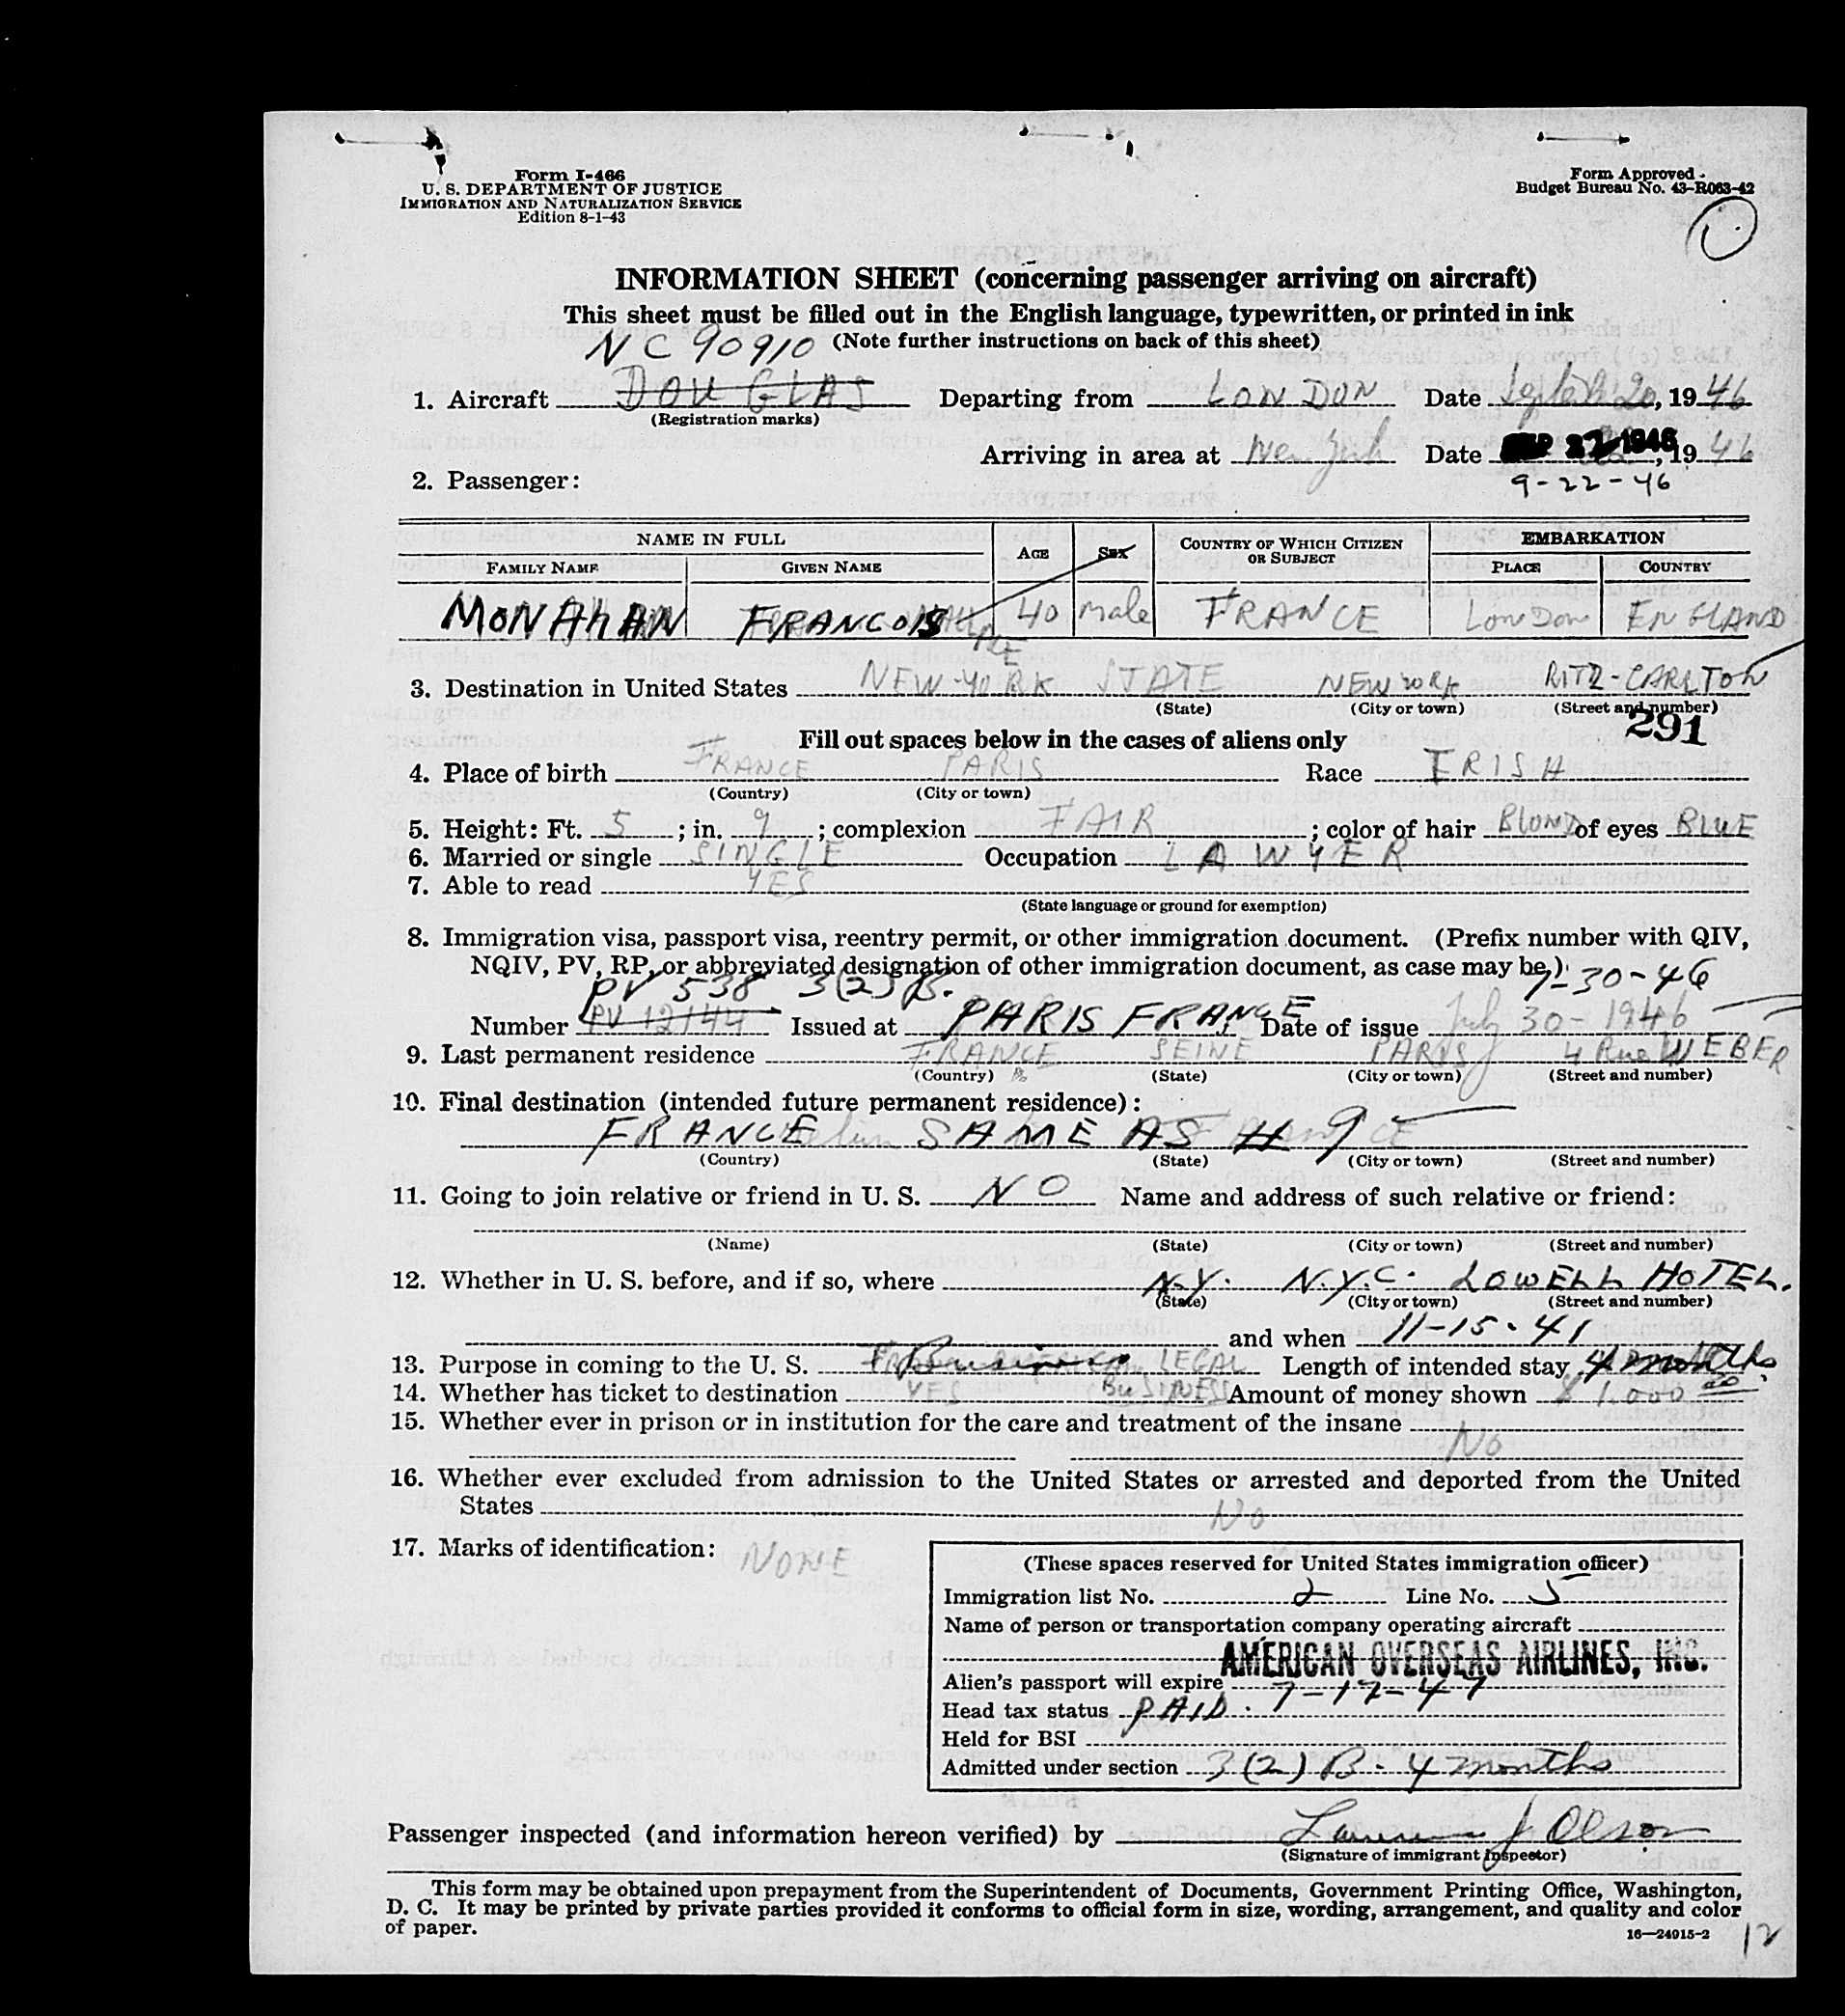 Form I-466
U. S. DEPARTMENT OF JUSTICE
IMMIGRATION AND NATURALIZATION SERVICE
Edition 8-1-43
Form Approved.
Budget Bureau No. 43-R063-42
INFORMATION SHEET (concerning passenger arriving on aircraft)
This sheet must be filled out in the English language, typewritten, or printed in ink
NC90910 (Note further instructions on back of this sheet)
1. Aircraft DOUGLAS Departing from LONDON Date 20, 1946
(Registration marks)
Arriving in area at New York Date SEP 22 1946, 1946
2. Passenger: 9-22-46
NAME IN FULL AGE SEX COUNTRY OF WHICH CITIZEN OR SUBJECT EMBARKATION
FAMILY NAME GIVEN NAME PLACE COUNTRY
MONAHAN FRANCOIS 40 male FRANCE LONDON ENGLAND
3. Destination in United States NEW-YORK STATE NEW YORK RITZ-CARLTON
(State) (City or town) (Street and number)
291
Fill out spaces below in the cases of aliens only
4. Place of birth FRANCE PARIS Race IRISH
(Country) (City or town)
5. Height: Ft. 5; in. 9; complexion FAIR; color of hair BLOND of eyes BLUE
6. Married or single SINGLE Occupation LAWYER
7. Able to read YES
(State language or ground for exemption)
8. Immigration visa, passport visa, reentry permit, or other immigration document. (Prefix number with QIV,
NQIV, PV, RP, or abbreviated designation of other immigration document, as case may be.)
PV 538 3(2) B. 7-30-46
Number PV 12144 Issued at PARIS FRANCE Date of issue July 30-1946
9. Last permanent residence FRANCE SEINE PARIS 4 Rue WEBER
(Country) (State) (City or town) (Street and number)
10. Final destination (intended future permanent residence):
FRANCE SAME AS # 9
(Country) (State) (City or town) (Street and number)
11. Going to join relative or friend in U. S. NO Name and address of such relative or friend:
(Name) (State) (City or town) (Street and number)
12. Whether in U. S. before, and if so, where N.Y. N.Y.C. LOWELL HOTEL.
(State) (City or town) (Street and number)
and when 11-15-41
13. Purpose in coming to the U. S. Business LEGAL Length of intended stay 4 months
14. Whether has ticket to destination YES BUSINESS Amount of money shown $1,000 00
15. Whether ever in prison or in institution for the care and treatment of the insane
No
16. Whether ever excluded from admission to the United States or arrested and deported from the United
States No
17. Marks of identification: NONE
(These spaces reserved for United States immigration officer)
Immigration list No. 2 Line No. 5
Name of person or transportation company operating aircraft
AMERICAN OVERSEAS AIRLINES, INC.
Alien's passport will expire 7-17-47
Head tax status PAID.
Held for BSI
Admitted under section 3(2) B. 4 months
Passenger inspected (and information hereon verified) by J Olson
(Signature of immigrant inspector)
This form may be obtained upon prepayment from the Superintendent of Documents, Government Printing Office, Washington,
D. C. It may be printed by private parties provided it conforms to official form in size, wording, arrangement, and quality and color
of paper.
16—24915-2 12